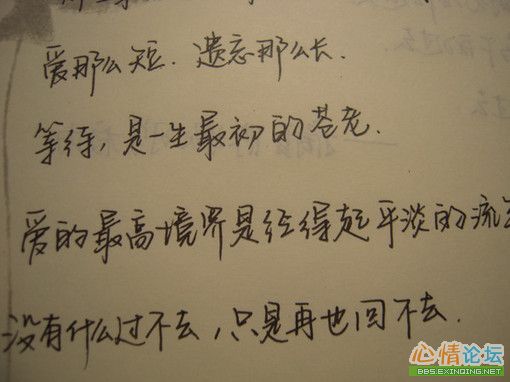 爱那么短.遗忘那么长.
等待,是一生最初的苍老.
爱的最高境界是经得起平淡的流
没有什么过不去,只是再也回不去.
心情论坛
BBS.EXINQING.NET